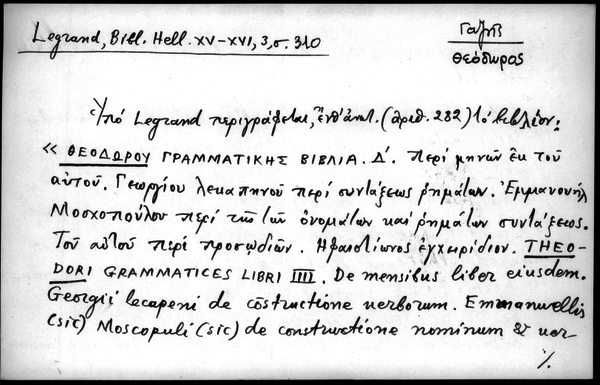 Legrand, Bibl. Hell. XV-XVI, 3, σ. 310
Γαζῆς
Θεόδωρος
Ὑπό Legrand περιγράφεται, ἔνθ' ἀνωτ. (ἀριθ. 282) τό βιβλίον:
« ΘΕΟΔΩΡΟΥ ΓΡΑΜΜΑΤΙΚΗΣ ΒΙΒΛΙΑ. Δ'. Περί μηνῶν ἐκ τοῦ
αὐτοῦ. Γεωργίου λεκαπηνοῦ περί συντάξεως ῥημάτων. Ἐμμανουήλ
Μοσχοπούλου περί τῆς τῶν ὀνομάτων καί ῥημάτων συντάξεως.
Τοῦ αὐτοῦ περί προσῳδιῶν. Ηφαιστίωνος ἐγχειρίδιον. THEO-
DORI GRAMMATICES LIBRI IIII. De mensibus liber eiusdem.
Georgii lecapeni de cōstructione uerborum. Emmanuellis
(sic) Moscopuli (sic) de constructione nominum & uer-
./.